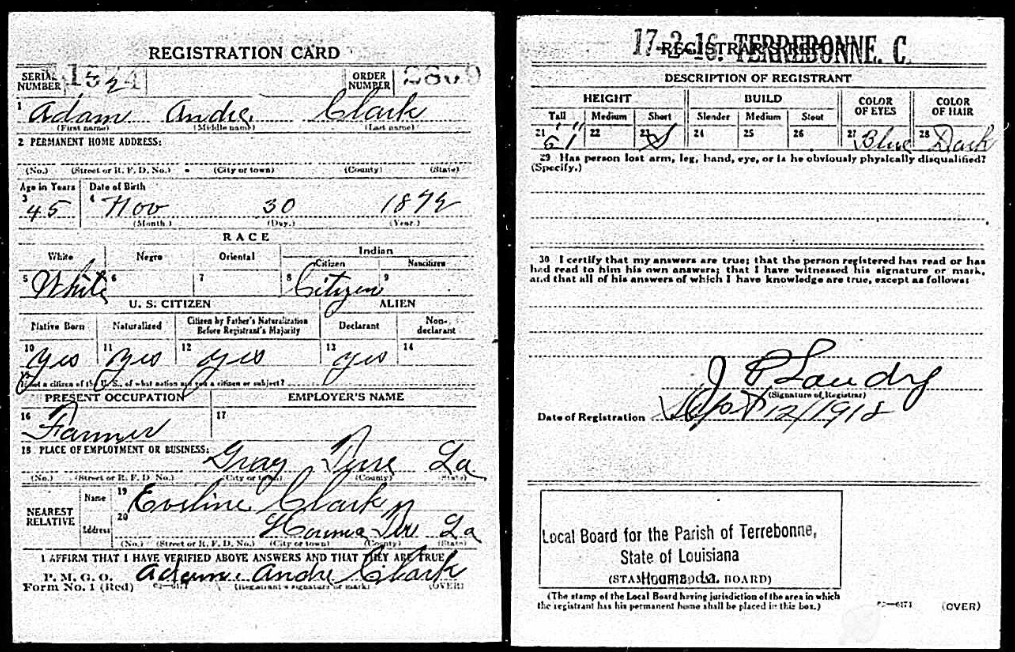 REGISTRATION CARD
SERIAL NUMBER 1524 ORDER NUMBER 2809
1 Adam Andre Clark
(First name) (Middle name) (Last name)
2 PERMANENT HOME ADDRESS:
(No.) (Street or R. F. D. No.) (City or town) (County) (State)
Age in Years Date of Birth
3 45 4 Nov 30 1872
(Month.) (Day.) (Year.)
RACE
White Negro Oriental Indian
Citizen Noncitizen
5 White 6 7 8 Citizen 9
U. S. CITIZEN ALIEN
Native Born Naturalized Citizen by Father's Naturalization Before Registrant's Majority Declarant Non-declarant
10 yes 11 yes 12 yes 13 yes 14
15 If not a citizen of the U. S., of what nation are you a citizen or subject?
PRESENT OCCUPATION EMPLOYER'S NAME
16 Farmer 17
18 PLACE OF EMPLOYMENT OR BUSINESS:
Gray Terre La
(No.) (Street or R. F. D. No.) (City or town) (County) (State)
NEAREST RELATIVE Name 19 Eveline Clark
Address 20 Houma Terre La
(No.) (Street or R. F. D. No.) (City or town) (County) (State)
I AFFIRM THAT I HAVE VERIFIED ABOVE ANSWERS AND THAT THEY ARE TRUE
P. M. G. O.
Form No. 1 (Red) Adam Andre Clark
(Registrant's signature or mark) (OVER)
17-2-16. TERREBONNE. C.
REGISTRAR'S REPORT
DESCRIPTION OF REGISTRANT
HEIGHT BUILD COLOR OF EYES COLOR OF HAIR
Tall Medium Short Slender Medium Stout
21 22 23 S 24 25 26 27 Blue 28 Dark
29 Has person lost arm, leg, hand, eye, or is he obviously physically disqualified?
(Specify.)
30 I certify that my answers are true; that the person registered has read or has
had read to him his own answers; that I have witnessed his signature or mark,
and that all of his answers of which I have knowledge are true, except as follows:
J P Landry
(Signature of Registrar)
Date of Registration Sept 12/1918
Local Board for the Parish of Terrebonne,
State of Louisiana
Houma, La.
(STAMP OF LOCAL BOARD)
(The stamp of the Local Board having jurisdiction of the area in which
the registrant has his permanent home shall be placed in this box.)
(OVER)